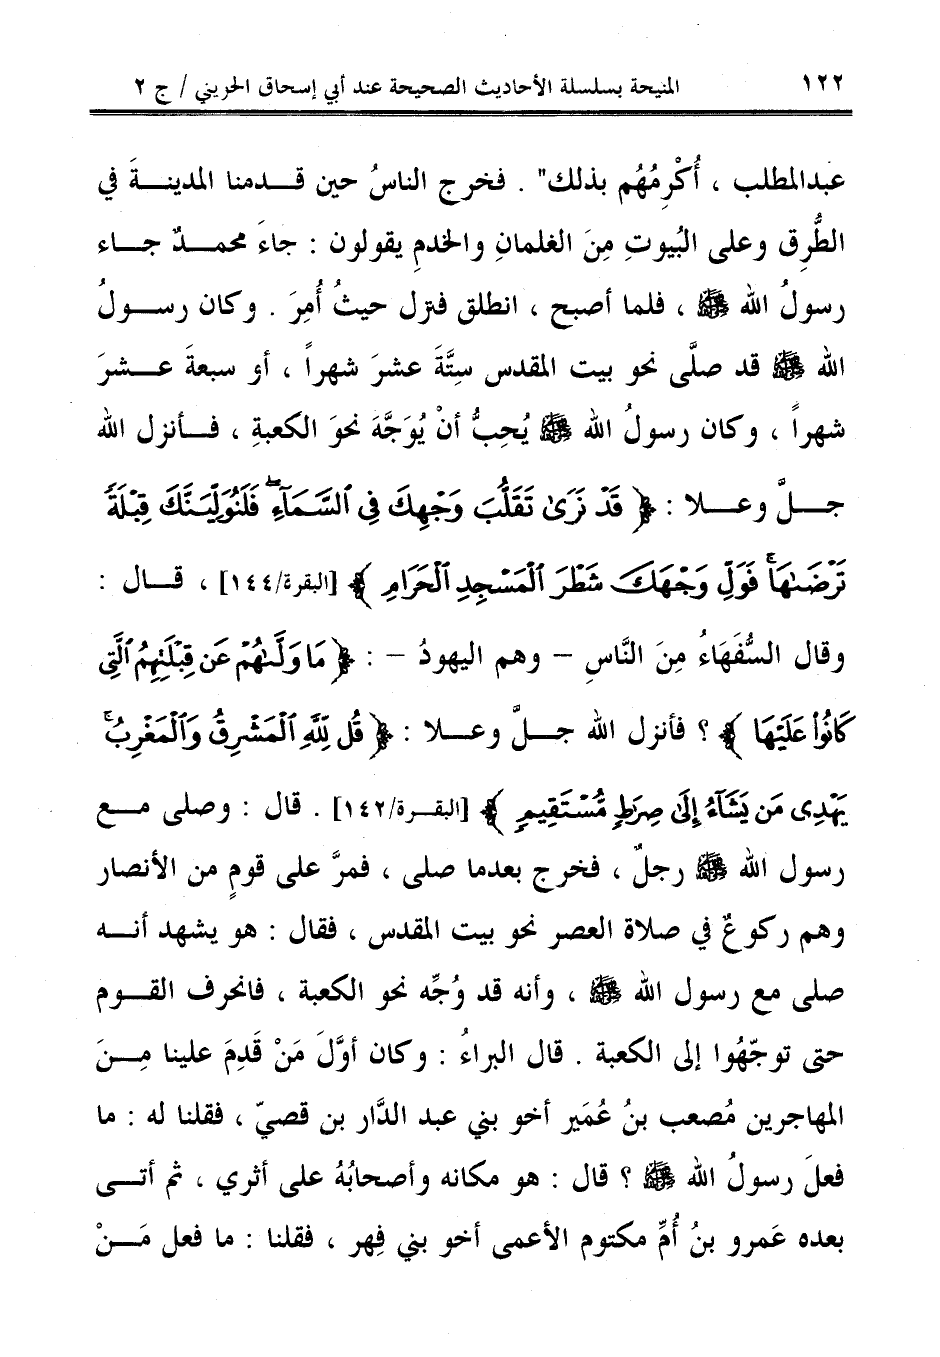 ١٢٢ المنيحة بسلسلة الأحاديث الصحيحة عند أبي إسحاق الحويني / ج ٢
عبدالمطلب ، أُكْرِمُهُم بذلك" . فخرج الناسُ حين قدمنا المدينةَ في
الطُّرق وعلى البُيوتِ مِنَ الغلمانِ والخدمِ يقولون : جاءَ محمدٌ جاء
رسولُ الله ﷺ ، فلما أصبح ، انطلق فنزل حيثُ أُمِرَ . وكان رسولُ
الله ﷺ قد صلَّى نحو بيت المقدس سِتَّةَ عشرَ شهراً ، أو سبعةَ عشرَ
شهراً ، وكان رسولُ الله ﷺ يُحِبُّ أنْ يُوَجَّهَ نحوَ الكعبةِ ، فأنزل الله
جلَّ وعلا : ﴿ قَدْ نَرَىٰ تَقَلُّبَ وَجْهِكَ فِي ٱلسَّمَآءِۖ فَلَنُوَلِّيَنَّكَ قِبْلَةً
تَرْضَىٰهَاۚ فَوَلِّ وَجْهَكَ شَطْرَ ٱلْمَسْجِدِ ٱلْحَرَامِ ﴾ [البقرة/١٤٤] ، قال :
وقال السُّفَهَاءُ مِنَ النَّاسِ – وهم اليهودُ – : ﴿ مَا وَلَّىٰهُمْ عَن قِبْلَتِهِمُ ٱلَّتِي
كَانُوا۟ عَلَيْهَا ﴾ ؟ فأنزل الله جلَّ وعلا : ﴿ قُل لِّلَّهِ ٱلْمَشْرِقُ وَٱلْمَغْرِبُۚ
يَهْدِى مَن يَشَآءُ إِلَىٰ صِرَٰطٍ مُّسْتَقِيمٍ ﴾ [البقرة/١٤٢] . قال : وصلى مع
رسول الله ﷺ رجلٌ ، فخرج بعدما صلى ، فمرَّ على قومٍ من الأنصار
وهم ركوعٌ في صلاة العصر نحو بيت المقدس ، فقال : هو يشهد أنه
صلى مع رسول الله ﷺ ، وأنه قد وُجِّه نحو الكعبة ، فانحرف القوم
حتى توجّهُوا إلى الكعبة . قال البراءُ : وكان أوَّلَ مَنْ قَدِمَ علينا مِنَ
المهاجرين مُصعب بنُ عُمَير أخو بني عبد الدَّار بن قصيّ ، فقلنا له : ما
فعلَ رسولُ الله ﷺ ؟ قال : هو مكانه وأصحابُهُ على أثري ، ثم أتى
بعده عَمرو بنُ أُمِّ مكتوم الأعمى أخو بني فِهر ، فقلنا : ما فعل مَنْ